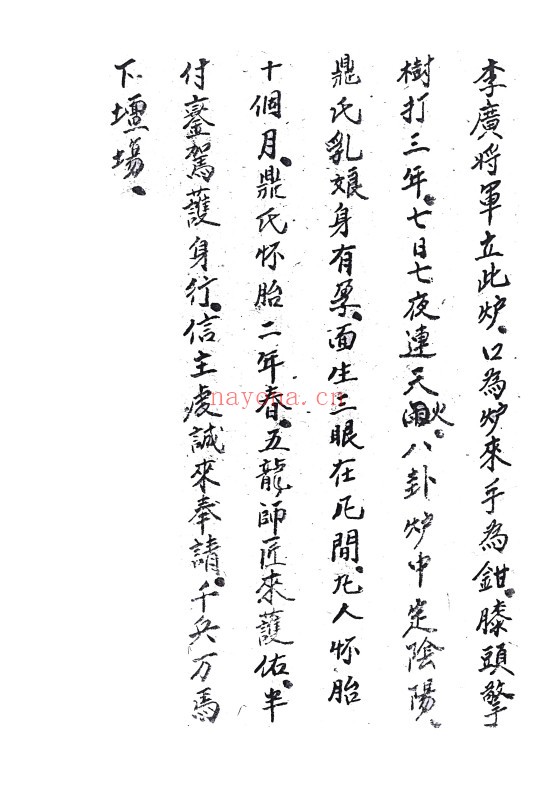 李廣將軍立此炉。口為炉來手為鉗。膝頭擎
樹打三年。七日七夜連天火。八卦炉中定陰陽、
鼎氏乳娘身有孕。面生三眼在凡間。凡人怀胎
十個月。鼎氏怀胎二年春。五龍師匠來護佑。半
付鑾駕護身行。信主虔誠來奉請。千兵万馬
下壇場、
nayona.cn